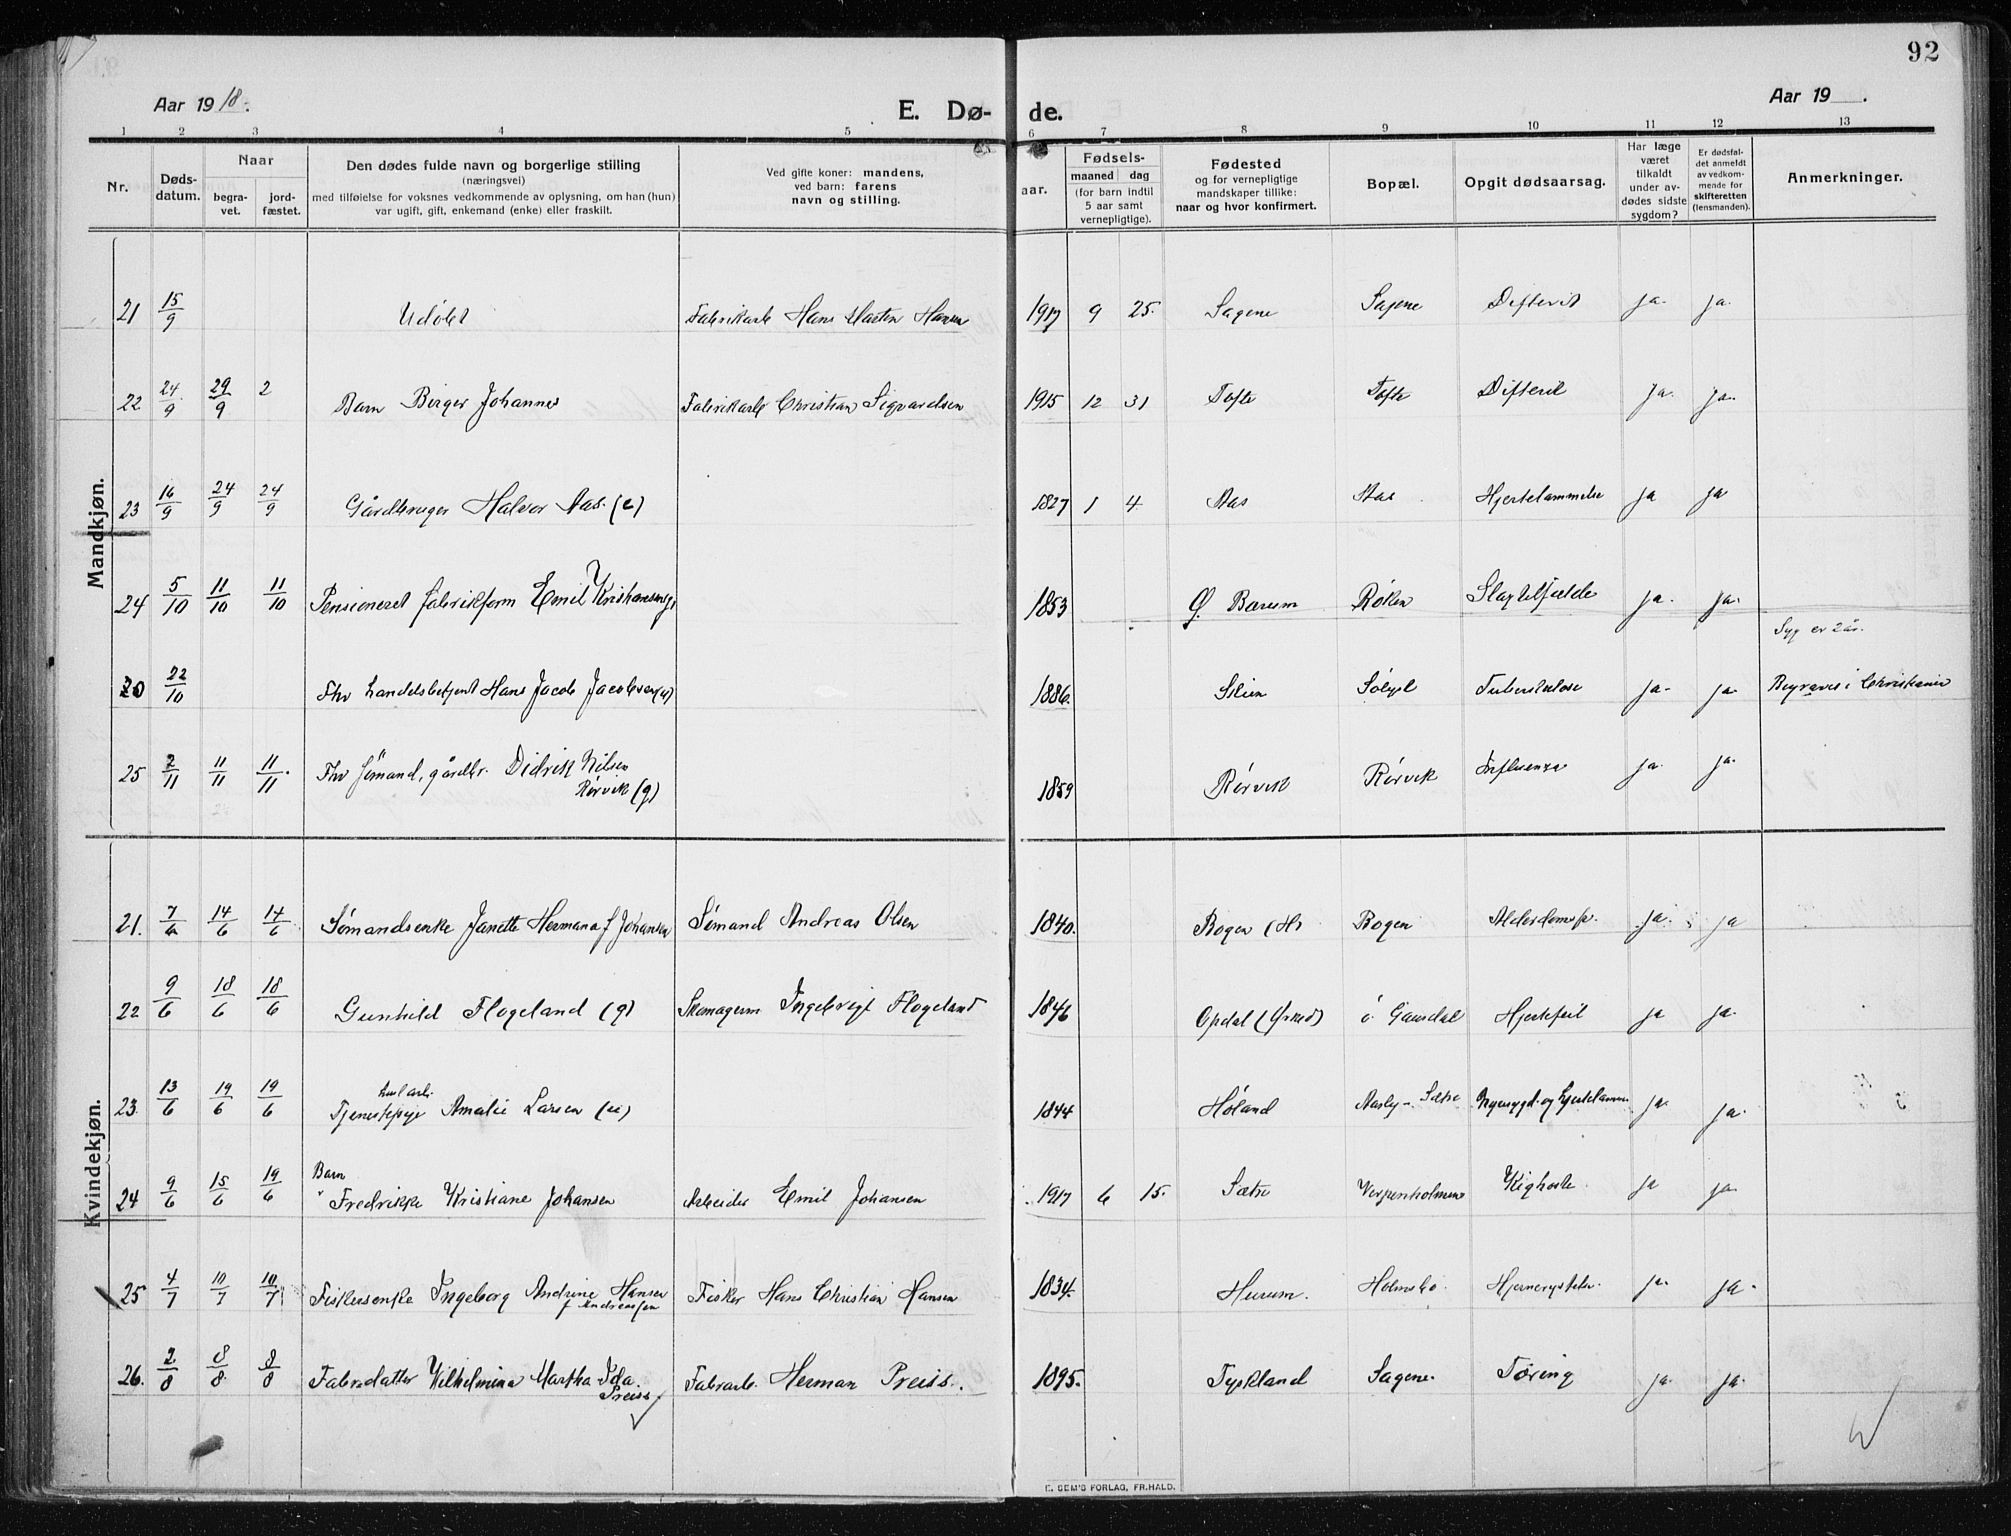 92
Aar 1918.
E. Dø-
de.
Aar 19 .
1 2 3 4 5 6 7 8 9 10 11 12 13
Nr.
Døds-
datum.
Naar
begra-
vet.
jord-
fæstet.
Den dødes fulde navn og borgerlige stilling
(næringsvei)
med tilføielse for voksnes vedkommende av oplysning, om han (hun)
var ugift, gift, enkemand (enke) eller fraskilt.
Ved gifte koner: mandens,
ved barn: farens
navn og stilling.
aar.
Fødsels-
maaned dag
(for barn indtil
5 aar samt
vernepligtige).
Fødested
og for vernepligtige
mandskaper tillike:
naar og hvor konfirmert.
Bopæl.
Opgit dødsaarsag.
Har læge
været
tilkaldt
under av-
dødes sidste
sygdom?
Er dødsfal-
det anmeldt
av vedkom-
mende for
skifteretten
(lensmanden).
Anmerkninger.
Mandkjøn.
21 15/9 Udøbt Fabrikarb Hans Martin Hansen 1917 9 25. Sagene Sagene Difterit ja. ja.
22 24/9 29/9 2 Barn Birger Johannes Fabrikarb Christian Sigvardsen 1915 12 31 Tofte Tofte Difterit ja. ja.
23 16/9 24/9 24/9 Gårdbruger Halvor Aas. (e) 1827 1 4 Aas Aas Hjertelammelse ja ja
24 5/10 11/10 11/10 Pensioneret fabrikform Emil Kristiansen g. 1853 Ø. Bærum Røken Slagtilfælde ja. ja.
Syg er 2 år.
20 22/10 Fhv handelsbetjent Hans Jacob Jacobsen (u) 1886. Skien Solgl Tuberkulose ja. ja. Begraves i Christiania
25 2/11 11/11 11/11. Fhv sømand, gårdbr. Didrik Nilsen
Rørvik (g) 1859 Rørvik Rørvik Influenza ja. ja.
Kvindekjøn.
21. 7/6 14/6 14/6 Sømandsenke Janette Hermana f Johansen Sømand Andreas Olsen 1840. Bogen (Hr Bogen Alderdomssv. ja. ja
22 9/6 18/6 18/6 Gunhild Flogeland (g) Skomagerm Ingebrigt Flogeland 1846 Opdal (Ørked) ö. Gausdal Hjertefeil ja ja.
23. 13/6 19/6 19/6 Tjenestepige Amalie Larsen (u) 1844 Høland Aasby - Sætre Nyresygd. og hjertelamm. ja. ja.
24 9/6 15/6 19/6 Barn
Fredrikke Kristiane Johansen Arbeider Emil Johansen 1917 6 15. Sætre Verpenholmene Kighoste. ja ja.
25 4/7 10/7 10/7 Fiskersenke Ingeborg Andrine Hansen
f Andreassen Fisker Hans Christian Hansen 1834. Hurum. Holmsbo Hjernerystelse. ja. ja.
26. 2/8 8/8. 8/8 Fabrsdatter Wilhelmina Martha Ida
Preiss Fabrarb. Herman Preiss. 1895. Tyskland Sagene. Tæring ja. ja.
E. SEM'S FORLAG, FR.HALD.